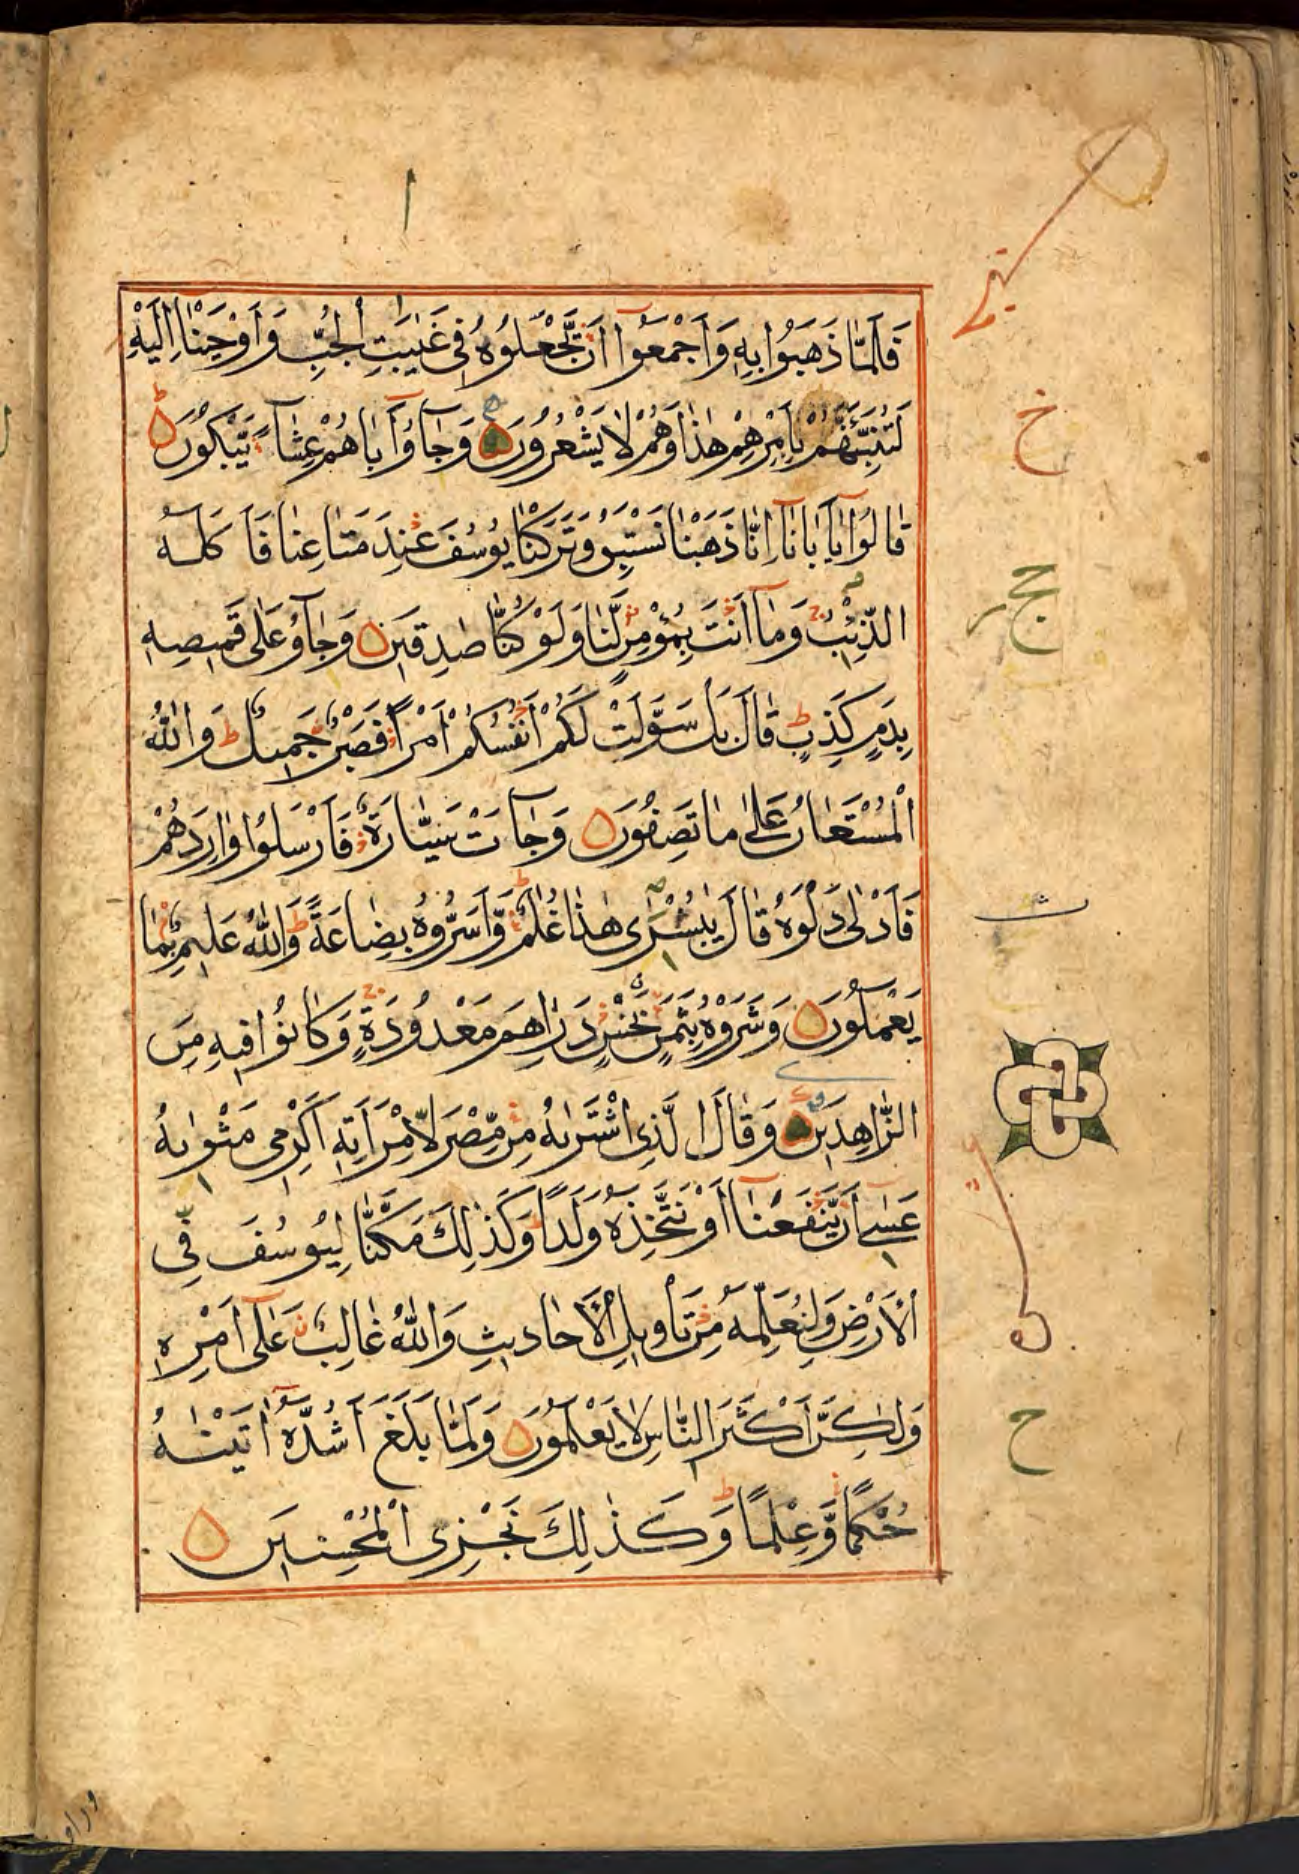 فَلَمَّا ذَهَبُوْا بِهٖ وَاَجْمَعُوْٓا اَنْ يَّجْعَلُوْهُ فِيْ غَيٰبَتِ الْجُبِّ وَاَوْحَيْنَا اِلَيْهِ
لَتُنَبِّئَنَّهُمْ بِاَمْرِهِمْ هٰذَا وَهُمْ لَا يَشْعُرُوْنَ وَجَآؤُ اَبَاهُمْ عِشَآءً يَّبْكُوْنَ ط
قَالُوْا يٰٓاَبَانَآ اِنَّا ذَهَبْنَا نَسْتَبِقُ وَتَرَكْنَا يُوْسُفَ عِنْدَ مَتَاعِنَا فَاَكَلَهُ
الذِّئْبُ ج وَمَآ اَنْتَ بِمُؤْمِنٍ لَّنَا وَلَوْ كُنَّا صٰدِقِيْنَ وَجَآؤُ عَلٰى قَمِيْصِهٖ
بِدَمٍ كَذِبٍ ط قَالَ بَلْ سَوَّلَتْ لَكُمْ اَنْفُسُكُمْ اَمْرًا فَصَبْرٌ جَمِيْلٌ ط وَاللّٰهُ
الْمُسْتَعَانُ عَلٰى مَا تَصِفُوْنَ وَجَآءَتْ سَيَّارَةٌ فَاَرْسَلُوْا وَارِدَهُمْ
فَاَدْلٰى دَلْوَهٗ قَالَ يٰبُشْرٰى هٰذَا غُلٰمٌ ط وَّاَسَرُّوْهُ بِضَاعَةً ط وَاللّٰهُ عَلِيْمٌ بِمَا
يَعْمَلُوْنَ وَشَرَوْهُ بِثَمَنٍ بَخْسٍ دَرَاهِمَ مَعْدُوْدَةٍ ج وَكَانُوْا فِيْهِ مِنَ
الزَّاهِدِيْنَ وَقَالَ الَّذِى اشْتَرٰىهُ مِنْ مِّصْرَ لِامْرَاَتِهٖٓ اَكْرِمِيْ مَثْوٰىهُ
عَسٰٓى اَنْ يَّنْفَعَنَآ اَوْ نَتَّخِذَهٗ وَلَدًا ط وَكَذٰلِكَ مَكَّنَّا لِيُوْسُفَ فِى
الْاَرْضِ وَلِنُعَلِّمَهٗ مِنْ تَاْوِيْلِ الْاَحَادِيْثِ وَاللّٰهُ غَالِبٌ عَلٰٓى اَمْرِهٖ
وَلٰكِنَّ اَكْثَرَ النَّاسِ لَا يَعْلَمُوْنَ وَلَمَّا بَلَغَ اَشُدَّهٗٓ اٰتَيْنٰهُ
حُكْمًا وَّعِلْمًا ط وَكَذٰلِكَ نَجْزِى الْمُحْسِنِيْنَ
خ
ح